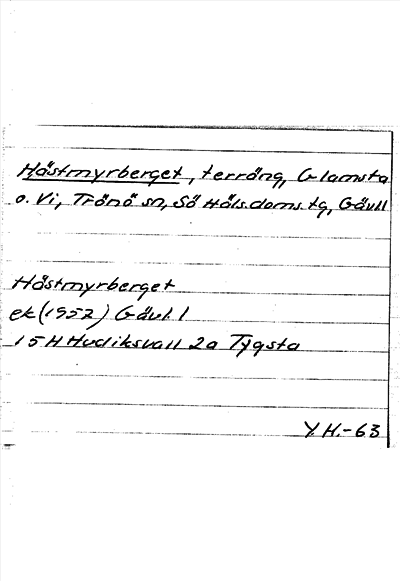 Hästmyrberget, terräng, Glamsta
o. Vi, Trönö sn, Sö Häls.doms.tg, Gävl.l
Hästmyrberget
ek (1957) Gävl. l
15H Hudiksvall 2a Tygsta
Y.H.-63